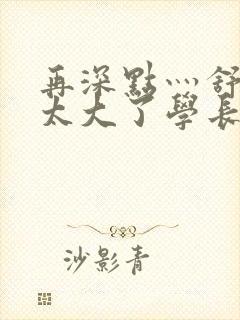 再深點灬舒
太大了學長
沙影青